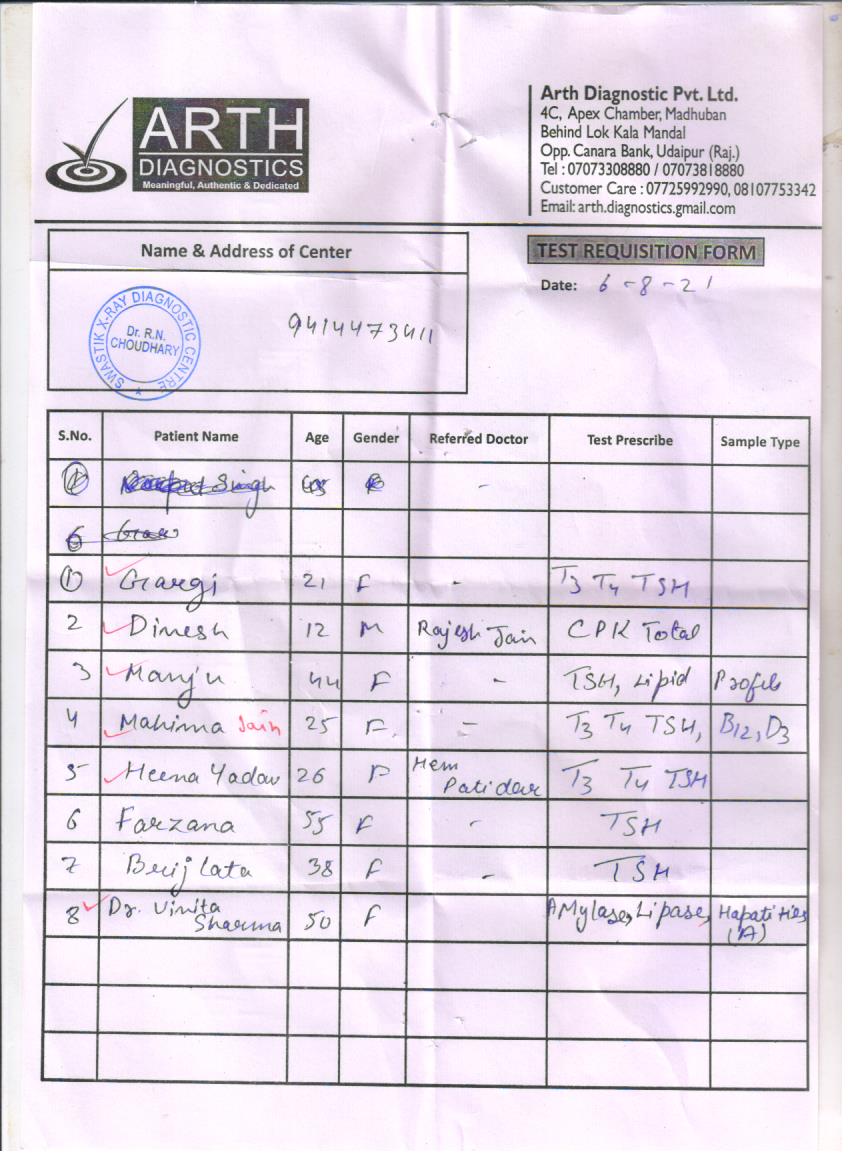 ARTH
DIAGNOSTICS
Meaningful, Authentic & Dedicated
Arth Diagnostic Pvt. Ltd.
4C, Apex Chamber, Madhuban
Behind Lok Kala Mandal
Opp. Canara Bank, Udaipur (Raj.)
Tel : 07073308880 / 07073818880
Customer Care : 07725992990, 08107753342
Email: arth.diagnostics.gmail.com
Name & Address of Center
TEST REQUISITION FORM
Date: 6-8-21
SWASTIK X-RAY DIAGNOSTIC CENTRE
Dr. R.N.
CHOUDHARY
9414473411
S.No. Patient Name Age Gender Referred Doctor Test Prescribe Sample Type
Singh -
6
1 Gargi 21 F - T3 T4 TSH
2 Dimesh 12 M Rajesh Jain CPK Total
3 Manju 44 F - TSH, Lipid Profile
4 Mahima Jain 25 F - T3 T4 TSH, B12, D3
5 Heena Yadav 26 F Hem Patidar T3 T4 TSH
6 Farzana 55 F - TSH
7 Brij lata 38 F - TSH
8 Dr. Vinita Sharma 50 F AMylase, Lipase, Hapatities (A)